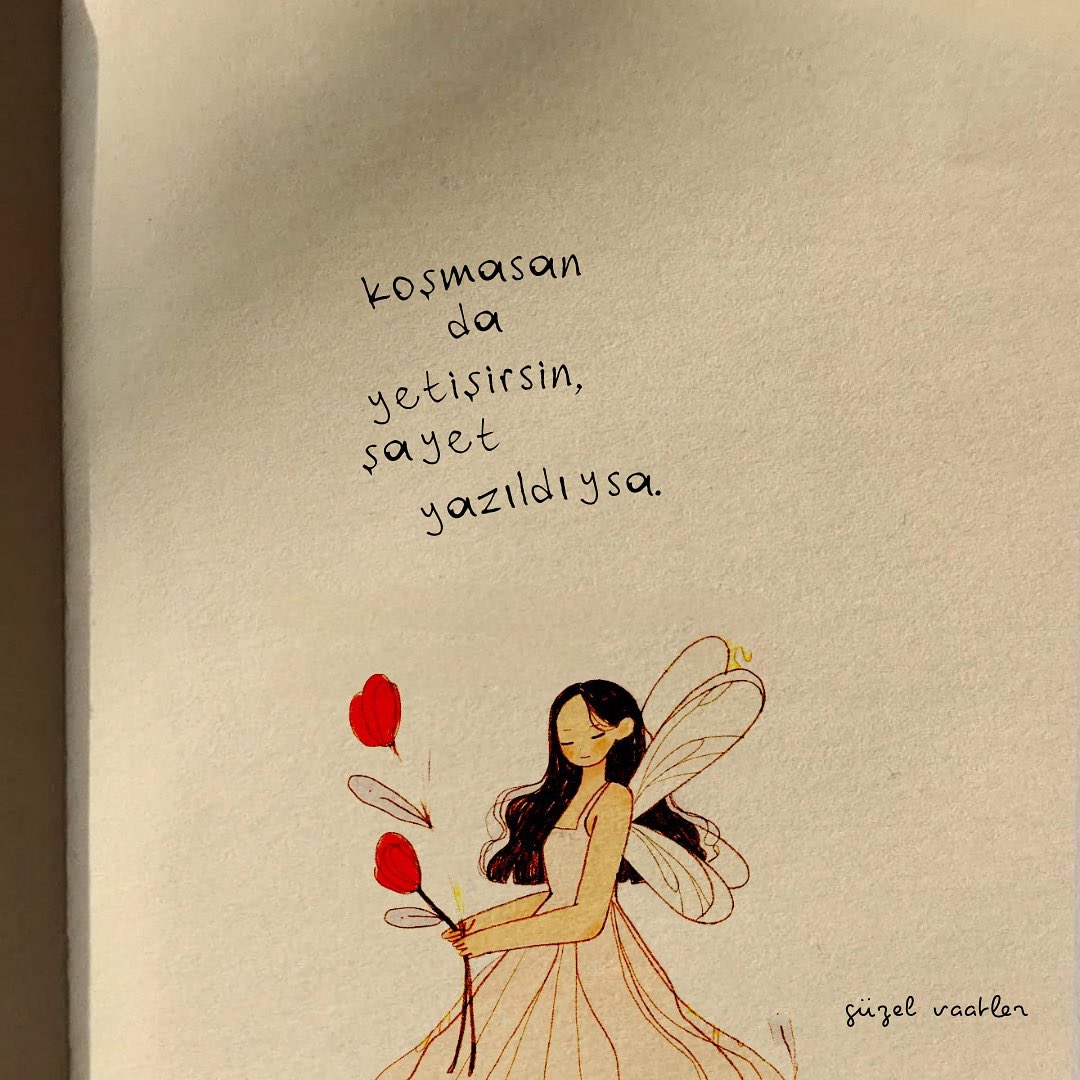 koşmasan
da
yetişirsin,
şayet
yazıldıysa.
güzel vaatler